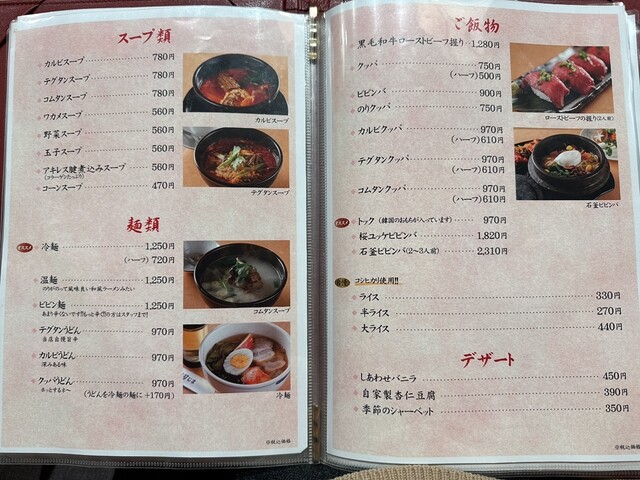 スープ類
カルビスープ 780円
テグタンスープ 780円
コムタンスープ 780円
ワカメスープ 560円
野菜スープ 560円
玉子スープ 560円
アキレス腱煮込みスープ 560円
(コラーゲンたっぷり)
コーンスープ 470円
カルビスープ
テグタンスープ
麺類
オススメ 冷麺 1,250円
(ハーフ) 720円
温麺 1,250円
のりがのって風味良い和風ラーメンみたい
ビビン麺 1,250円
テグタンうどん 970円
当店自慢旨辛
カルビうどん 970円
深みある味
クッパうどん 970円
ホッとするネ〜 (うどんを冷麺の麺に +170円)
コムタンスープ
冷麺
※税込価格
ご飯物
黒毛和牛ローストビーフ握り 1,280円
クッパ 750円
(ハーフ) 500円
ビビンバ 900円
のりクッパ 750円
カルビクッパ 970円
(ハーフ) 610円
テグタンクッパ 970円
(ハーフ) 610円
コムタンクッパ 970円
(ハーフ) 610円
オススメ トック (韓国のおもちが入っています) 970円
桜ユッケビビンバ 1,820円
石釜ビビンバ(2〜3人前) 2,310円
ローストビーフの握り(2人前)
石釜ビビンバ
コシヒカリ使用!!
ライス 330円
半ライス 270円
大ライス 440円
デザート
しあわせバニラ 450円
自家製杏仁豆腐 390円
季節のシャーベット 350円
※税込価格